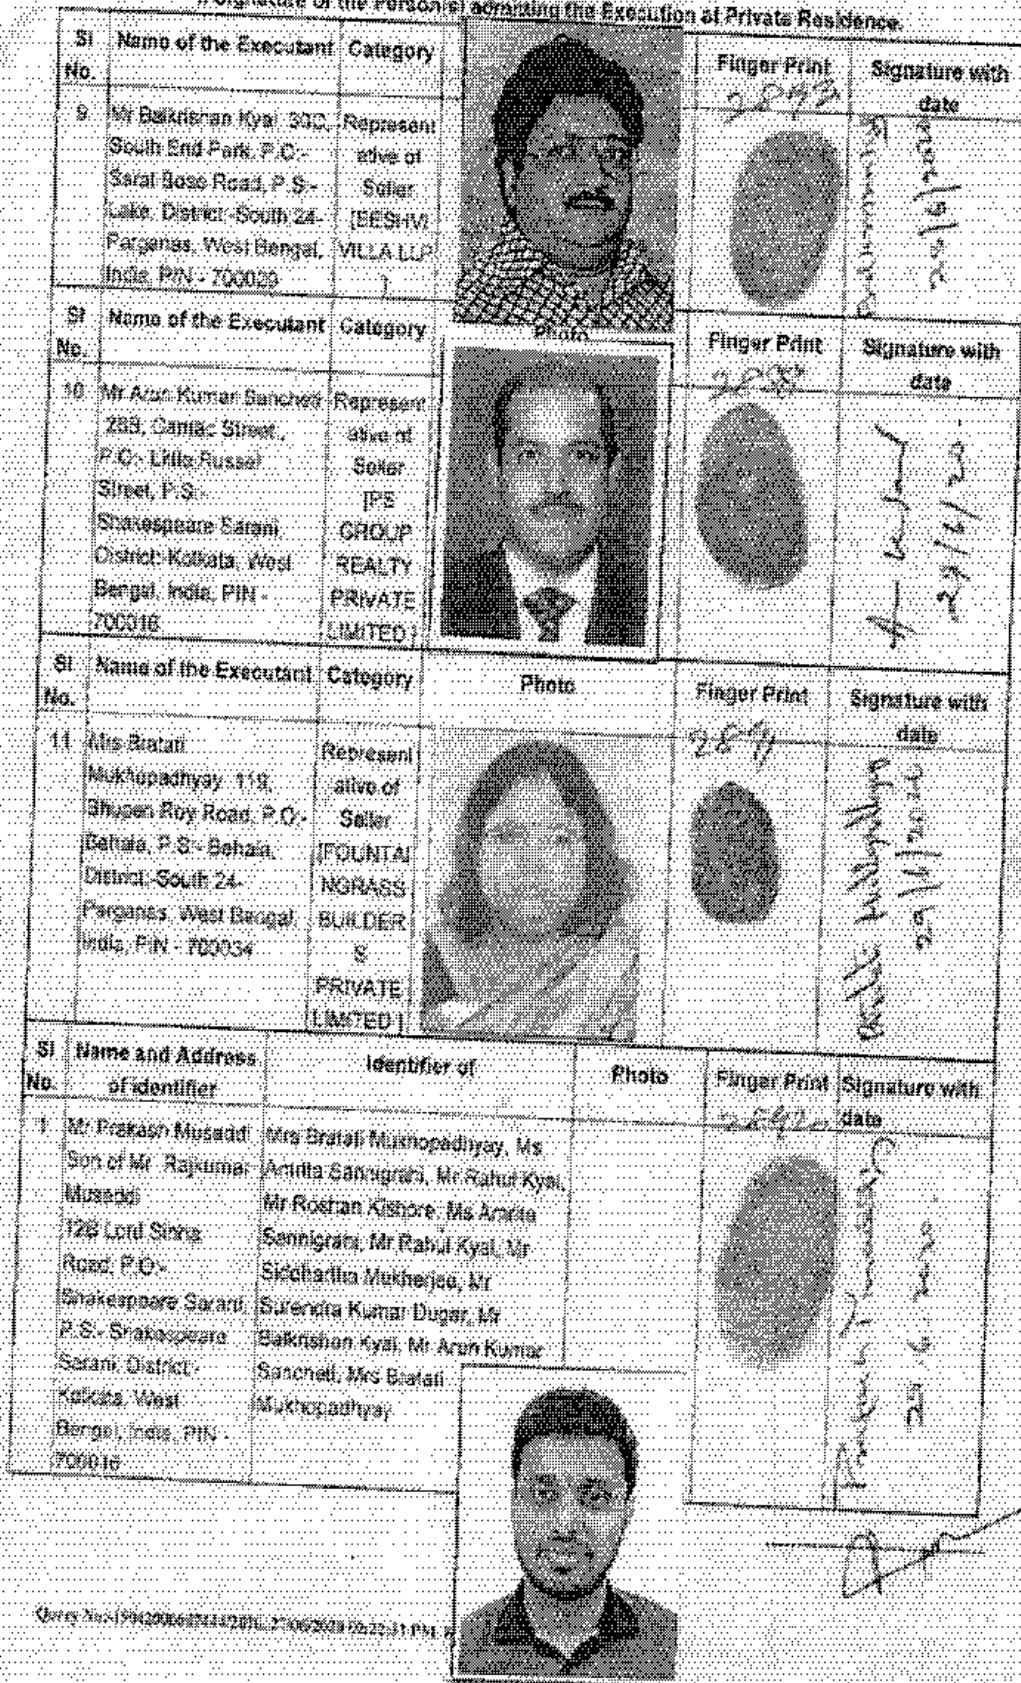 Signature of the Person(s) admitting the Execution at Private Residence.
Sl No. Name of the Executant Category Finger Print Signature with date
9 Mr Balkrishan Kyal 30C, South End Park, P.O:- Sarat Bose Road, P.S:- Lake, District:-South 24-Parganas, West Bengal, India, PIN - 700029
Represent ative of Seller [EESHVI VILLA LLP ]
29/6/2020
Sl No. Name of the Executant Category Photo Finger Print Signature with date
10 Mr Arun Kumar Sancheti 28B, Camac Street, P.O:- Little Russel Street, P.S:- Shakespeare Sarani, District:-Kolkata, West Bengal, India, PIN - 700016
Represent ative of Seller [PS GROUP REALTY PRIVATE LIMITED ]
29/6/20
Sl No. Name of the Executant Category Photo Finger Print Signature with date
11 Mrs Bratati Mukhopadhyay 119, Bhupen Roy Road, P.O:- Behala, P.S:- Behala, District:-South 24-Parganas, West Bengal, India, PIN - 700034
Represent ative of Seller [FOUNTAI NGRASS BUILDER S PRIVATE LIMITED ]
2891
Bratati Mukhopadhyay
29/6/2020
Sl No. Name and Address of identifier Identifier of Photo Finger Print Signature with date
1 Mr Prakash Musaddi Son of Mr Rajkumar Musaddi 12B Lord Sinha Road, P.O:- Shakespeare Sarani, P.S:- Shakespeare Sarani, District:-Kolkata, West Bengal, India, PIN - 700016
Mrs Bratati Mukhopadhyay, Ms Amrita Sannigrahi, Mr Rahul Kyal, Mr Roshan Kishore, Ms Amrita Sannigrahi, Mr Rahul Kyal, Mr Siddhartha Mukherjee, Mr Surendra Kumar Dugar, Mr Balkrishan Kyal, Mr Arun Kumar Sancheti, Mrs Bratati Mukhopadhyay
29.6.2020